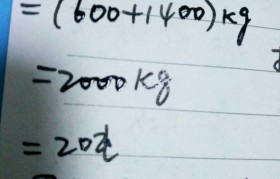 =(600+1400)kg
=2000kg
=20